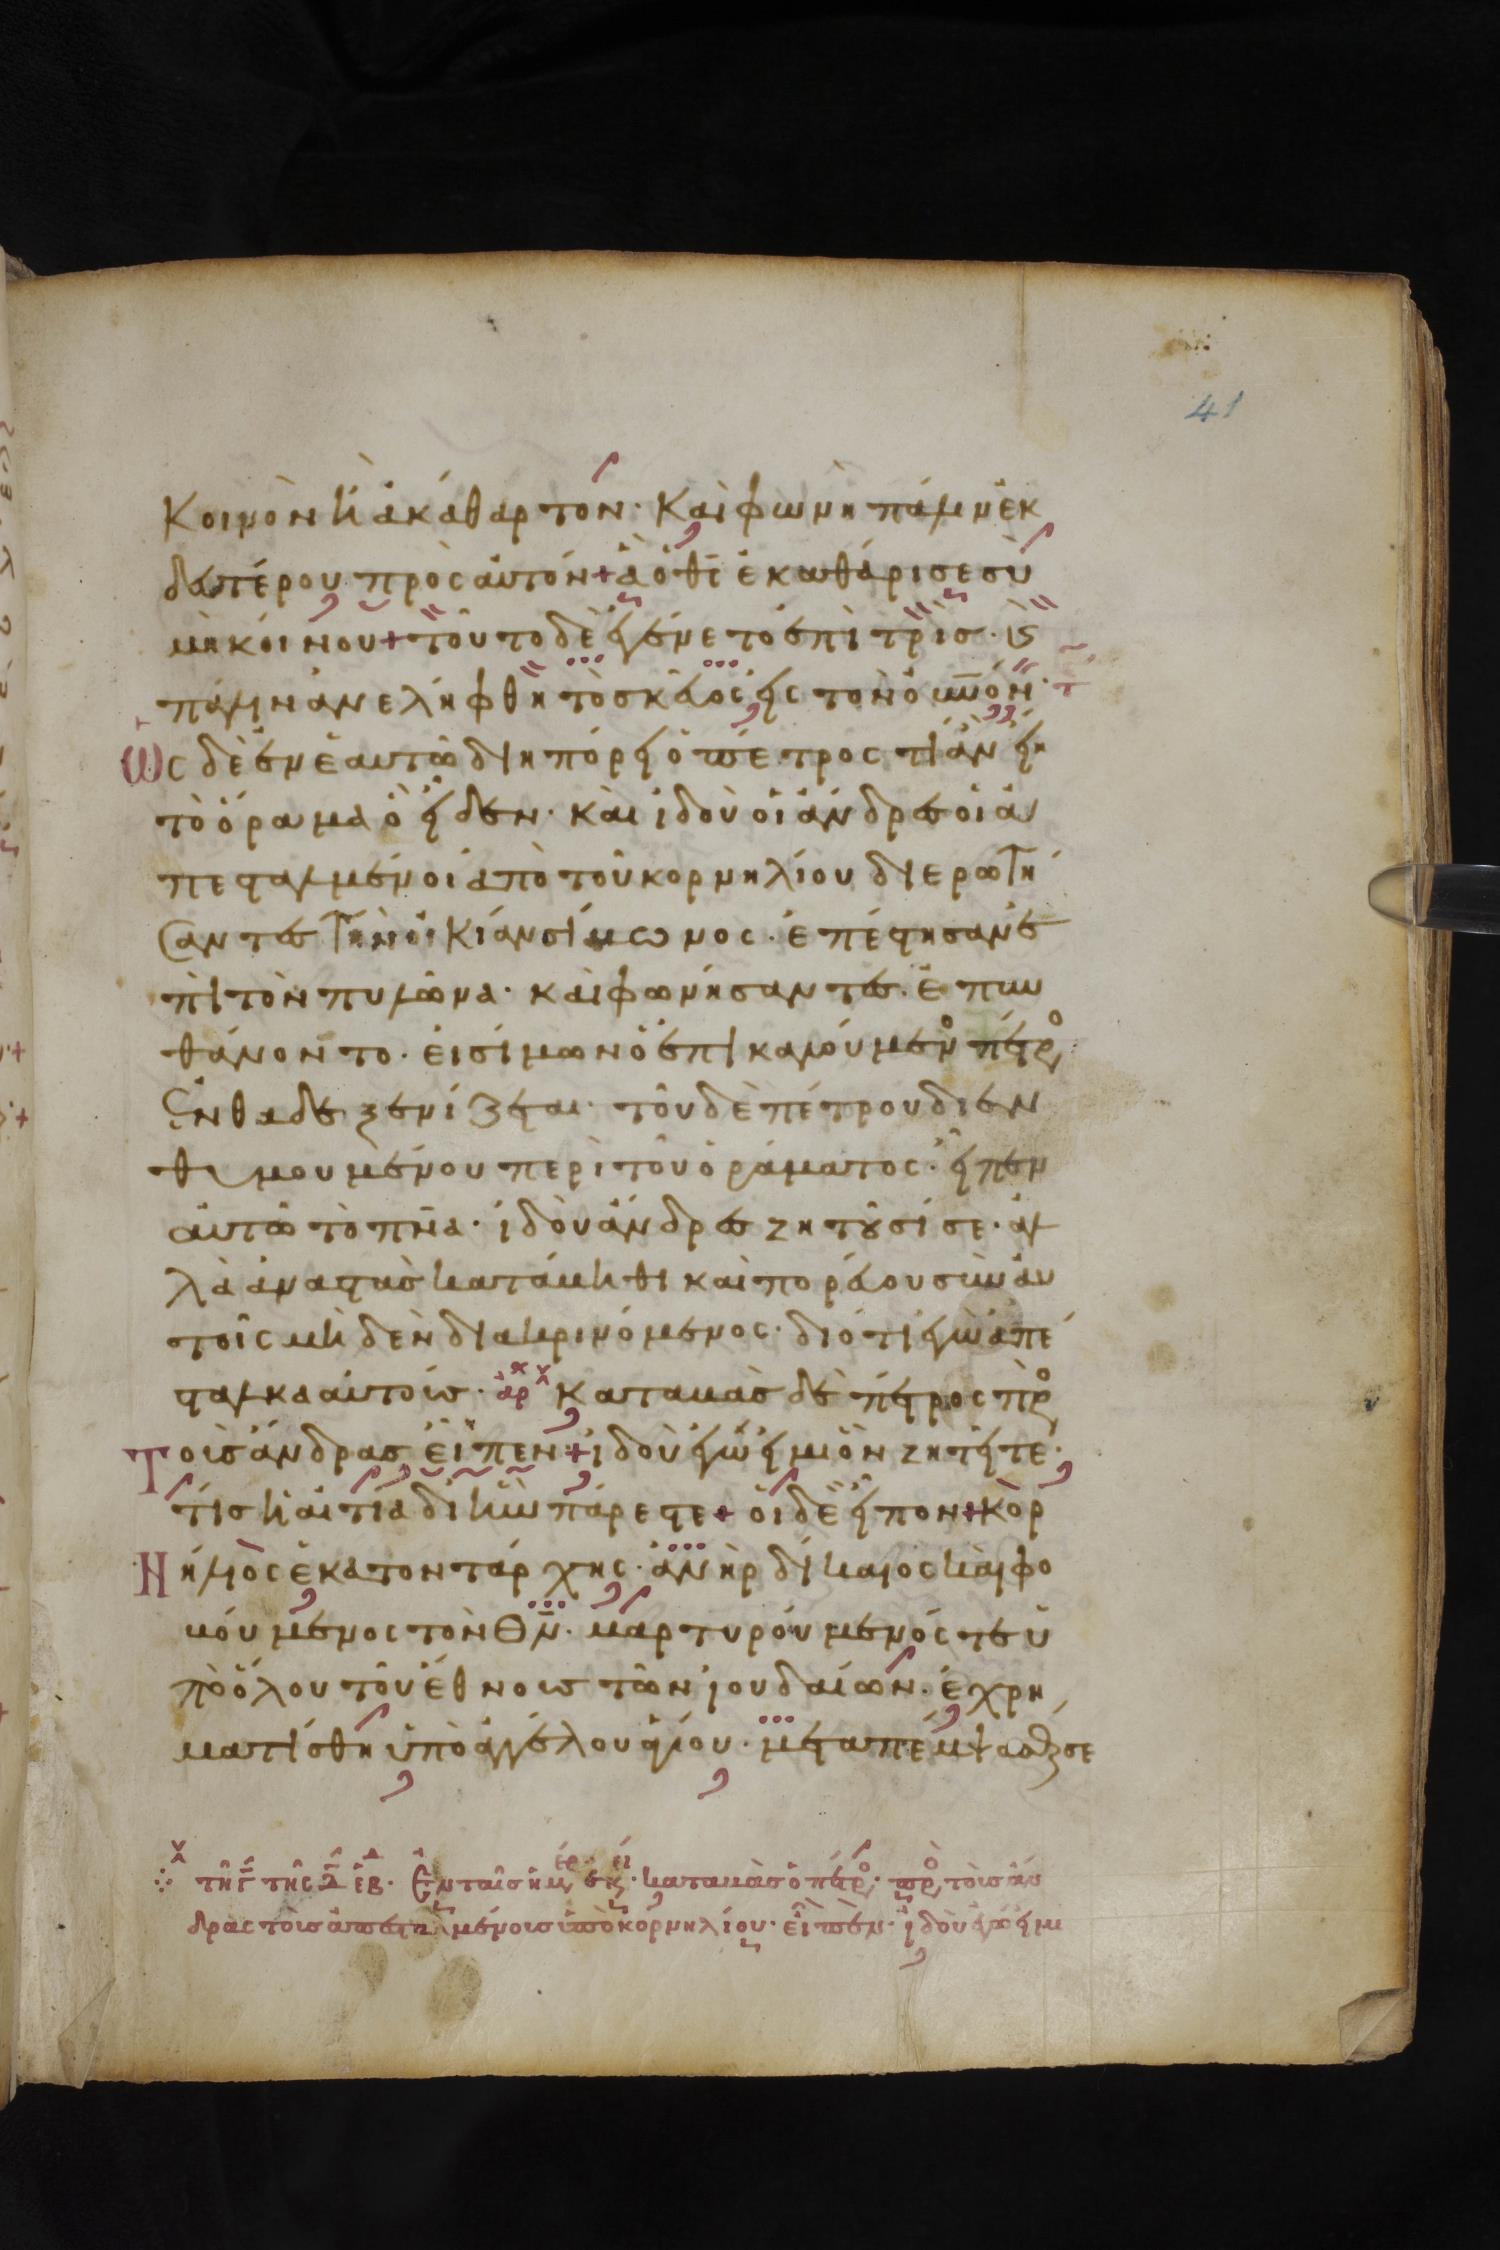 41
Κοινὸν ἢ ἀκάθαρτόν· Καὶ φωνὴ πάλιν ἐκ
δευτέρου πρὸς αὐτόν + ἃ ὁ θς̄ ἐκαθάρισε σὺ
μὴ κοίνου + τοῦτο δὲ ἐγένετο ἐπὶ τρὶς· κ̀
πάλιν ἀνελήφθη τὸ σκεῦος εἰς τὸν οὐνόν· τ
Ὡς δὲ ἐν ἑαυτῶ διηπόρει ὁ πέτρος τί ἂν εἴη
τὸ ὅραμα ὃ εἶδεν· καὶ ἰδοὺ οἱ ἄνδρες οἱ ἀ
πεσταλμένοι ἀπὸ τοῦ κορνηλίου διερωτή
σαντες τὴν οἰκίαν σίμωνος· ἐπέστησαν ἐ
πὶ τὸν πυλῶνα· καὶ φωνήσαντες· ἐπυν
θάνοντο· εἰ σίμων ὁ ἐπικαλούμενο πέτρ
ἐνθάδε ξενίζεται· τοῦ δὲ πέτρου διεν
θυμουμένου περὶ τοῦ ὁράματος· εἶπεν
αὐτῶ τὸ πν̄α· ἰδοὺ ἄνδρες ζητοῦσί σε· ἀλ
λὰ ἀναστὰς κατάβηθι καὶ πορεύου σὺν αὐ
τοῖς μηδὲν διακρινόμενος· διότι ἐγὼ ἀπέ
σταλκα αὐτούς· ἀρχ Καταβὰς δὲ πέτρος πρὸ
Τοὺς ἄνδρας εἶπεν + ἰδοὺ ἐγώ εἰμι ὃν ζητεῖτε·
τίς ἡ αἰτία δι ἣν πάρεστε + οἱ δὲ εἶπον + κορ
Νήλιος ἑκατοντάρχης· ἀνὴρ δίκαιος καὶ φο
βούμενος τὸν θν̄· μαρτυρούμενός τε ὑ
πὸ ὅλου τοῦ ἔθνους τῶν ἰουδαίων· ἐχρη
ματίσθη ὑπὸ ἀγγέλου ἁγίου· μεταπέμψασθαί σε
τῆ γ̄ τῆς ε̄ ἑβ· Ἐν ταῖς ἡμέρ ἐκεί· καταβὰς ὁ πέτρο· πρὸ τοὺς ἄν
δρας τοὺς ἀπεσταλμένους ὑπὸ κορνηλίου· εἶπεν· ἰδοὺ ἐγώ εἰμι